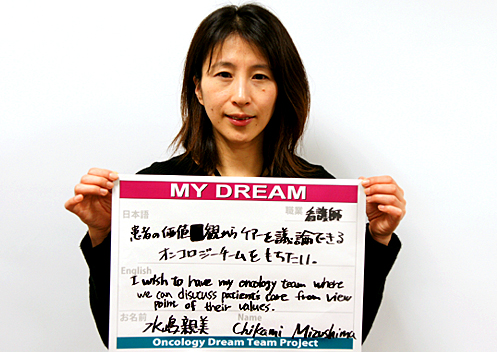 MY DREAM
日本語 職業 看護師
患者の価値観からケアーを議論できる
オンコロジーチームをもちたい。
English
I wish to have my oncology team where
we can discuss patient's care from view
point of their values.
お名前 水島親美 Name Chikami Mizushima
Oncology Dream Team Project